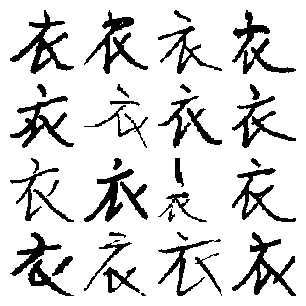 衣衣衣衣
衣衣衣衣
衣衣衣衣
衣衣衣衣